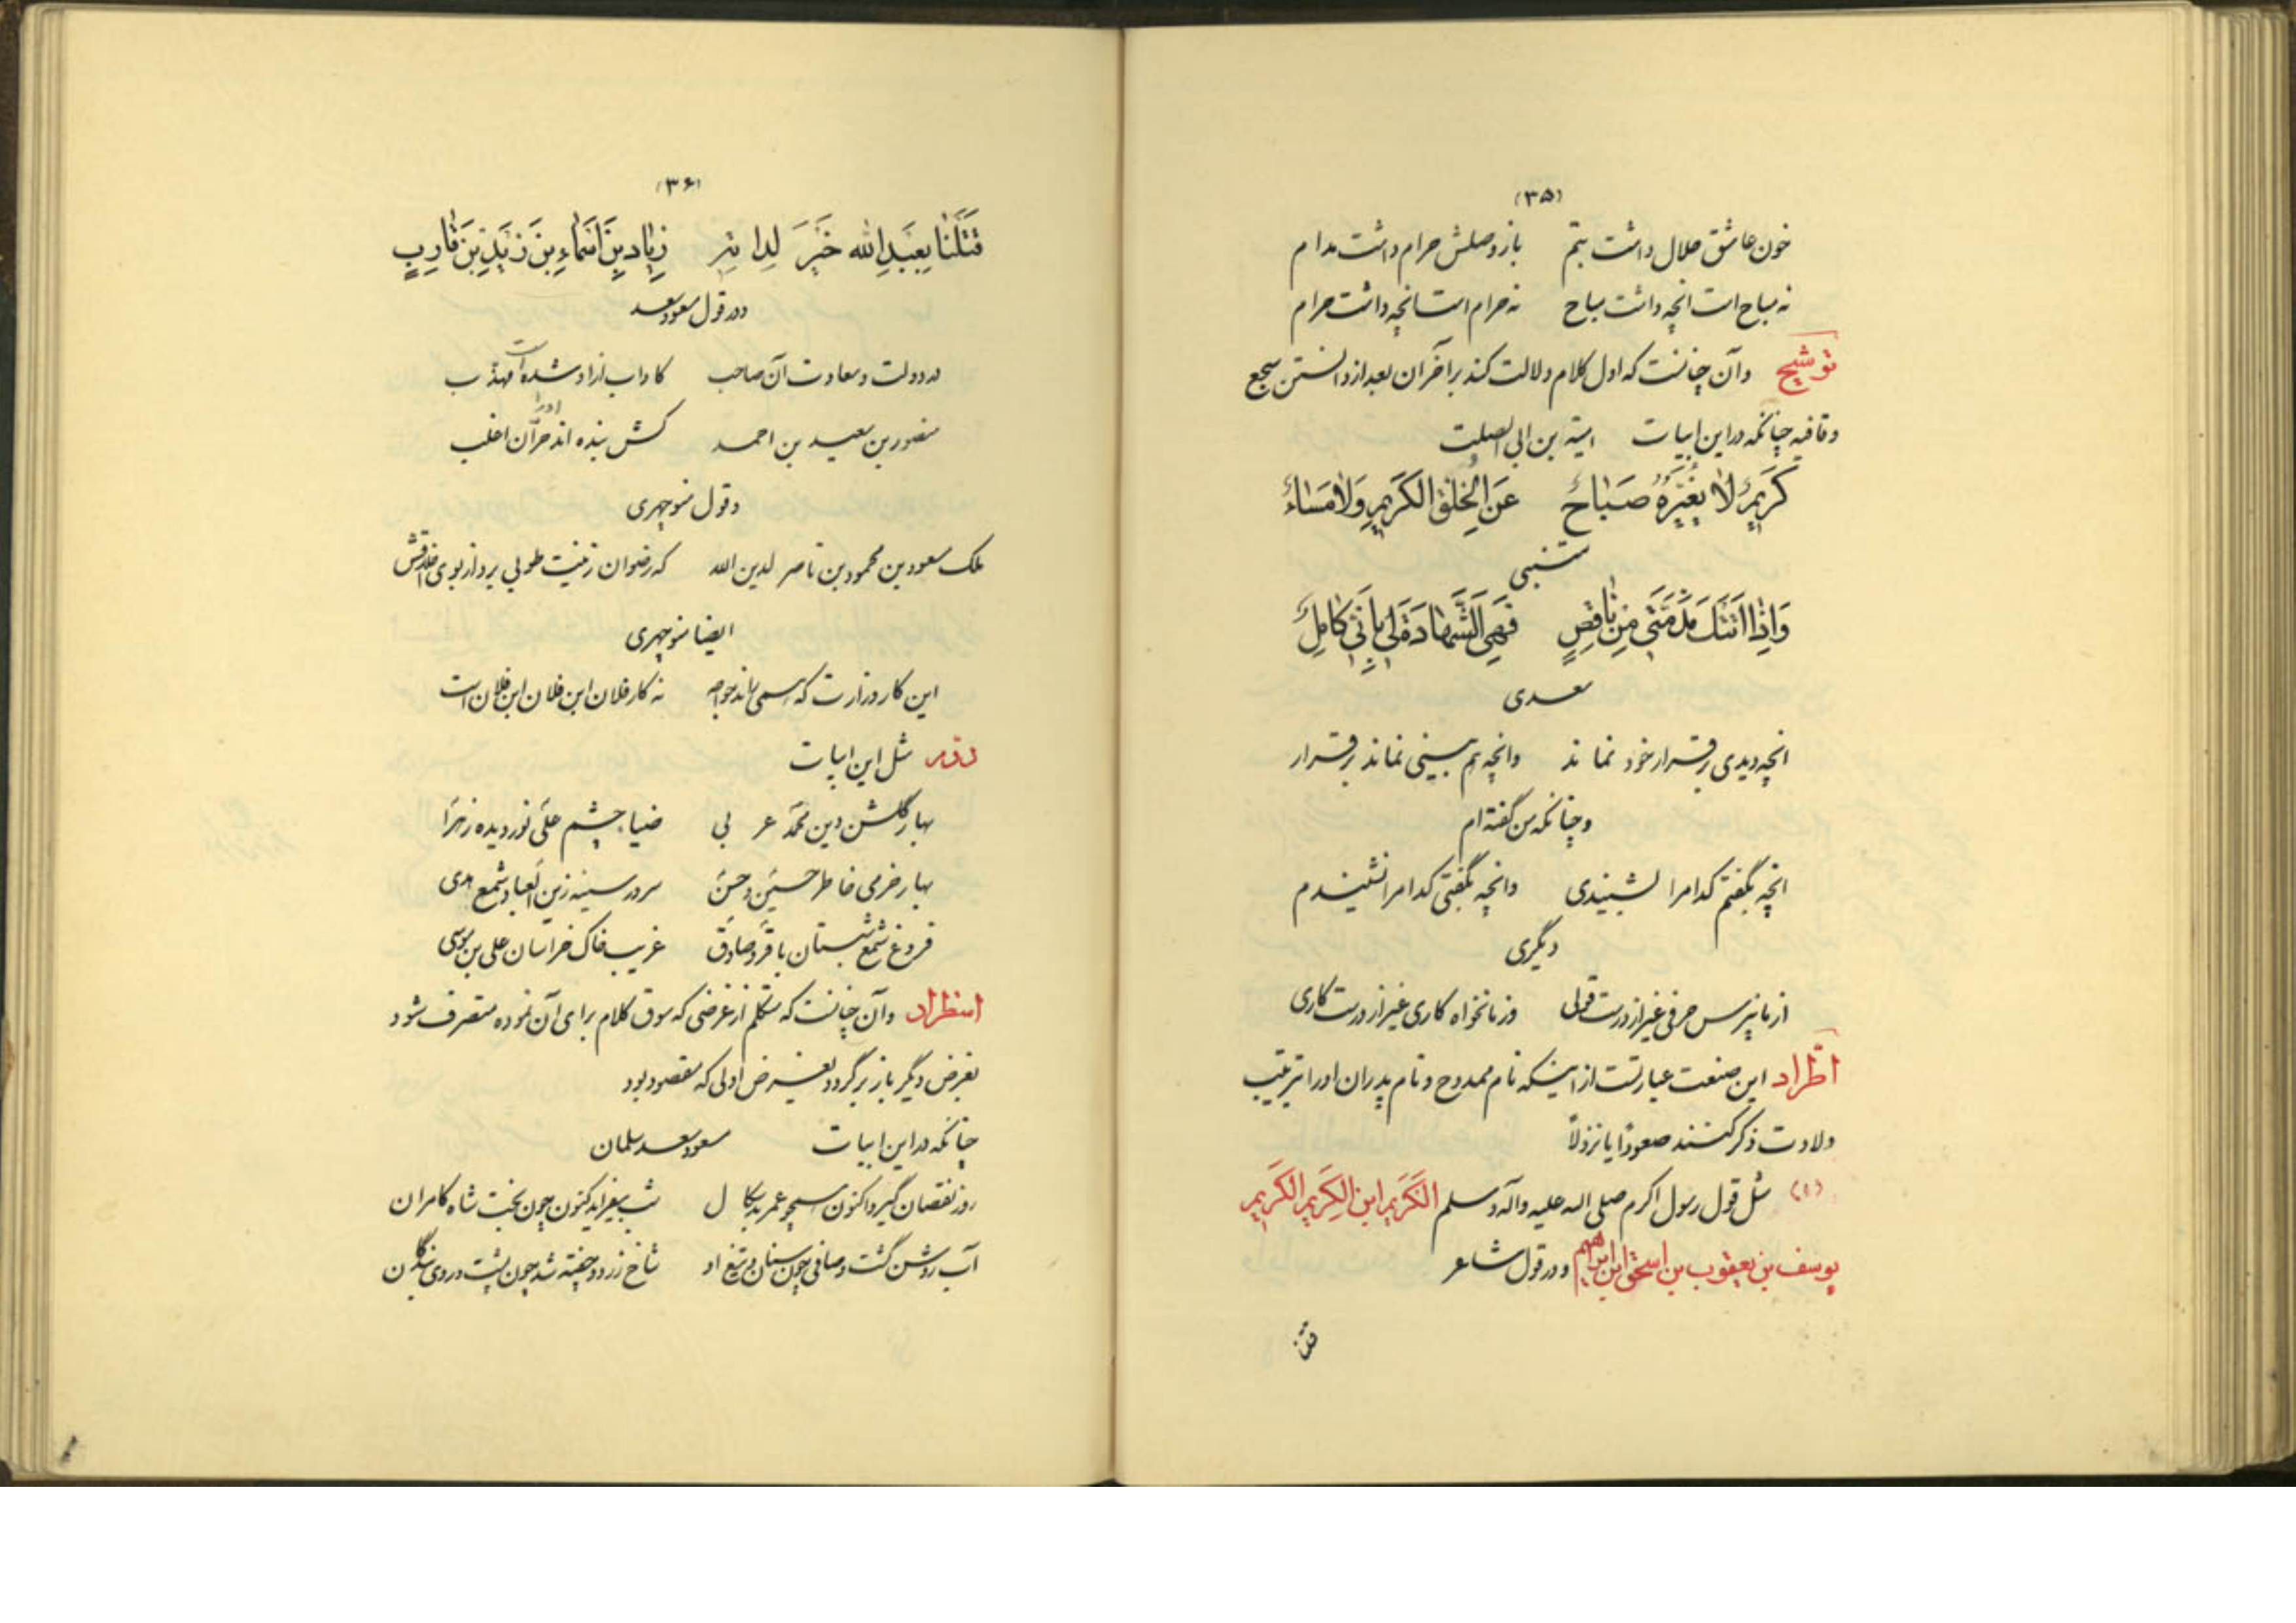 (۳۵)
خون عاشق حلال داشت بتم باز وصلش حرام داشت مدام
نه مباح است انچه داشت مباح نه حرام است انچه داشت حرام
توشیح وآن چنانست که اول کلام دلالت کند برآخرآن بعد از دانستن سجع
وقافیه چنانکه دراین ابیات امیة بن ابی الصلت
کَرِیمٌ لا یُغَیِّرُهُ صَبَاحٌ عَنِ الخُلُقِ الکَرِیمِ وَلا مَسَاءُ
متنبی
وَاِذَا اَتَتْكَ مَذَمَّتِی مِنْ نَاقِصٍ فَهِیَ الشَّهَادَةُ لِی بِاَنِّی کَامِلٌ
سعدی
انچه دیدی برقرار خود نماند وانچه هم بینی نماند برقرار
وچنانکه من گفته ام
انچه بگفتم کدامرا بشنیدی وانچه بگفتی کدامرا نشنیدم
دیگری
از ما نپرس حرفی غیر از درست قولی وز ما نخواه کاری غیر از درست کاری
اطّراد این صنعت عبارتست از اینکه نام ممدوح و نام پدران اورا بترتیب
ولادت ذکر کنند صعوداً یا نزولاً
(۱) مثل قول رسول اکرم صلی الله علیه وآله وسلم الکریم ابن الکریم الکریم
یوسف بن یعقوب بن اسحق ابن ابراهیم ودر قول شاعر
قتلنا
(۳۶)
قَتَلْنَا بِعَبْدِ الله خَیْرَ لِدَاتِهِ زِیَادِ بْنِ اَسْمَاءِ بْنِ زَیْدِ بْنِ قَارِبٍ
ودر قول مسعود سعد
در دولت وسعادت آن صاحب کاداب ازاو شده است مهذب
منصور بن سعید بن احمد کش بنده اند حرّان اغلب
وقول منوچهری
ملک مسعود بن محمود بن ناصر لدین الله که رضوان زینت طوبی برد از بوی اخلاقش
ایضا منوچهری
این کار وزارت که همی راند خواجه نه کار فلان ابن فلان ابن فلان است
دوّم مثل این ابیات
بهار گلشن دین محمّد عربی ضیاء چشم علی نور دیده زهرا
بهار خرمی خاطر حسین وحسن سرور سینه زین العباد شمع هدی
فروغ شمع شبستان باقر وصادق غریب خاک خراسان علی بن موسی
استطراد وآن چنانست که متکلم از غرضی که سوق کلام برای آن نموده متصرف شود
بغرض دیگر باز برگردد بغرض اولی که مقصود بود
چنانکه دراین ابیات مسعود سعد سلمان
روز نقصان گیرد اکنون همچو عمر بدسگال شب بیفزاید کنون چون بخت شاه کامران
آب روشن گشت وصافی چون سنان وتیغ او شاخ زرد وچفته شد چون پشت وروی بندگان